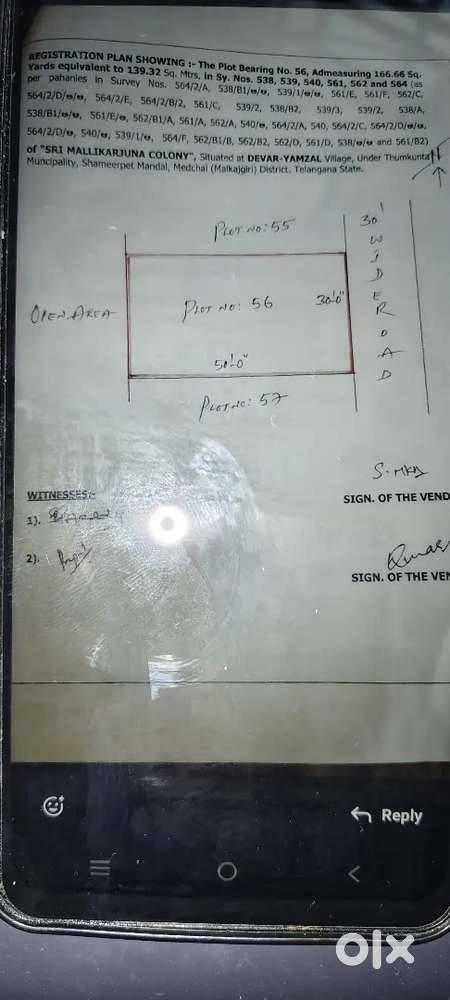 REGISTRATION PLAN SHOWING :- The Plot Bearing No. 56, Admeasuring 166.66 Sq.
Yards equivalent to 139.32 Sq. Mtrs, in Sy. Nos. 538, 539, 540, 561, 562 and 564 (as
per pahanies in Survey Nos. 564/2/A, 538/B1/ 539/1/ 561/E, 561/F, 562/C,
564/2/D/ 564/2/E, 564/2/B/2, 561/C, 539/2, 538/B2, 539/3, 539/2, 538/A,
538/B1/ 561/E/ 562/B1/A, 561/A, 562/A, 540/ 564/2/A, 540, 564/2/C, 564/2/D/
564/2/D/ 540/ 539/1/ 564/F, 562/B1/B, 562/B2, 562/D, 561/D, 538/ and 561/B2)
of "SRI MALLIKARJUNA COLONY", Situated at DEVAR-YAMZAL Village, Under Thumkunta
Muncipality, Shameerpet Mandal, Medchal (Malkajgiri) District. Telangana State.
N
PLOT NO: 55
30' WIDE ROAD
OPEN AREA
PLOT NO: 56
30'-0"
50'-0"
PLOT NO: 57
WITNESSES:-
SIGN. OF THE VEND
1).
2).
SIGN. OF THE VEN
Reply
olx